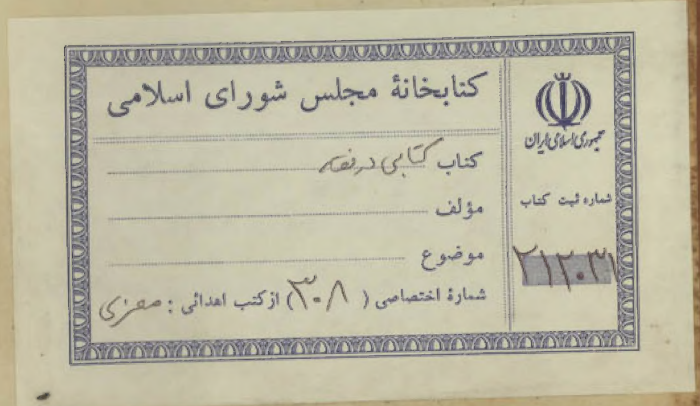 کتابخانهٔ مجلس شورای اسلامی
کتاب کتابی در فقه
مؤلف
موضوع
شمارهٔ اختصاصی ( ۳۰۸ ) از کتب اهدائی :
جمهوری اسلامی ایران
شماره ثبت کتاب
۲۱۲۰۳۱